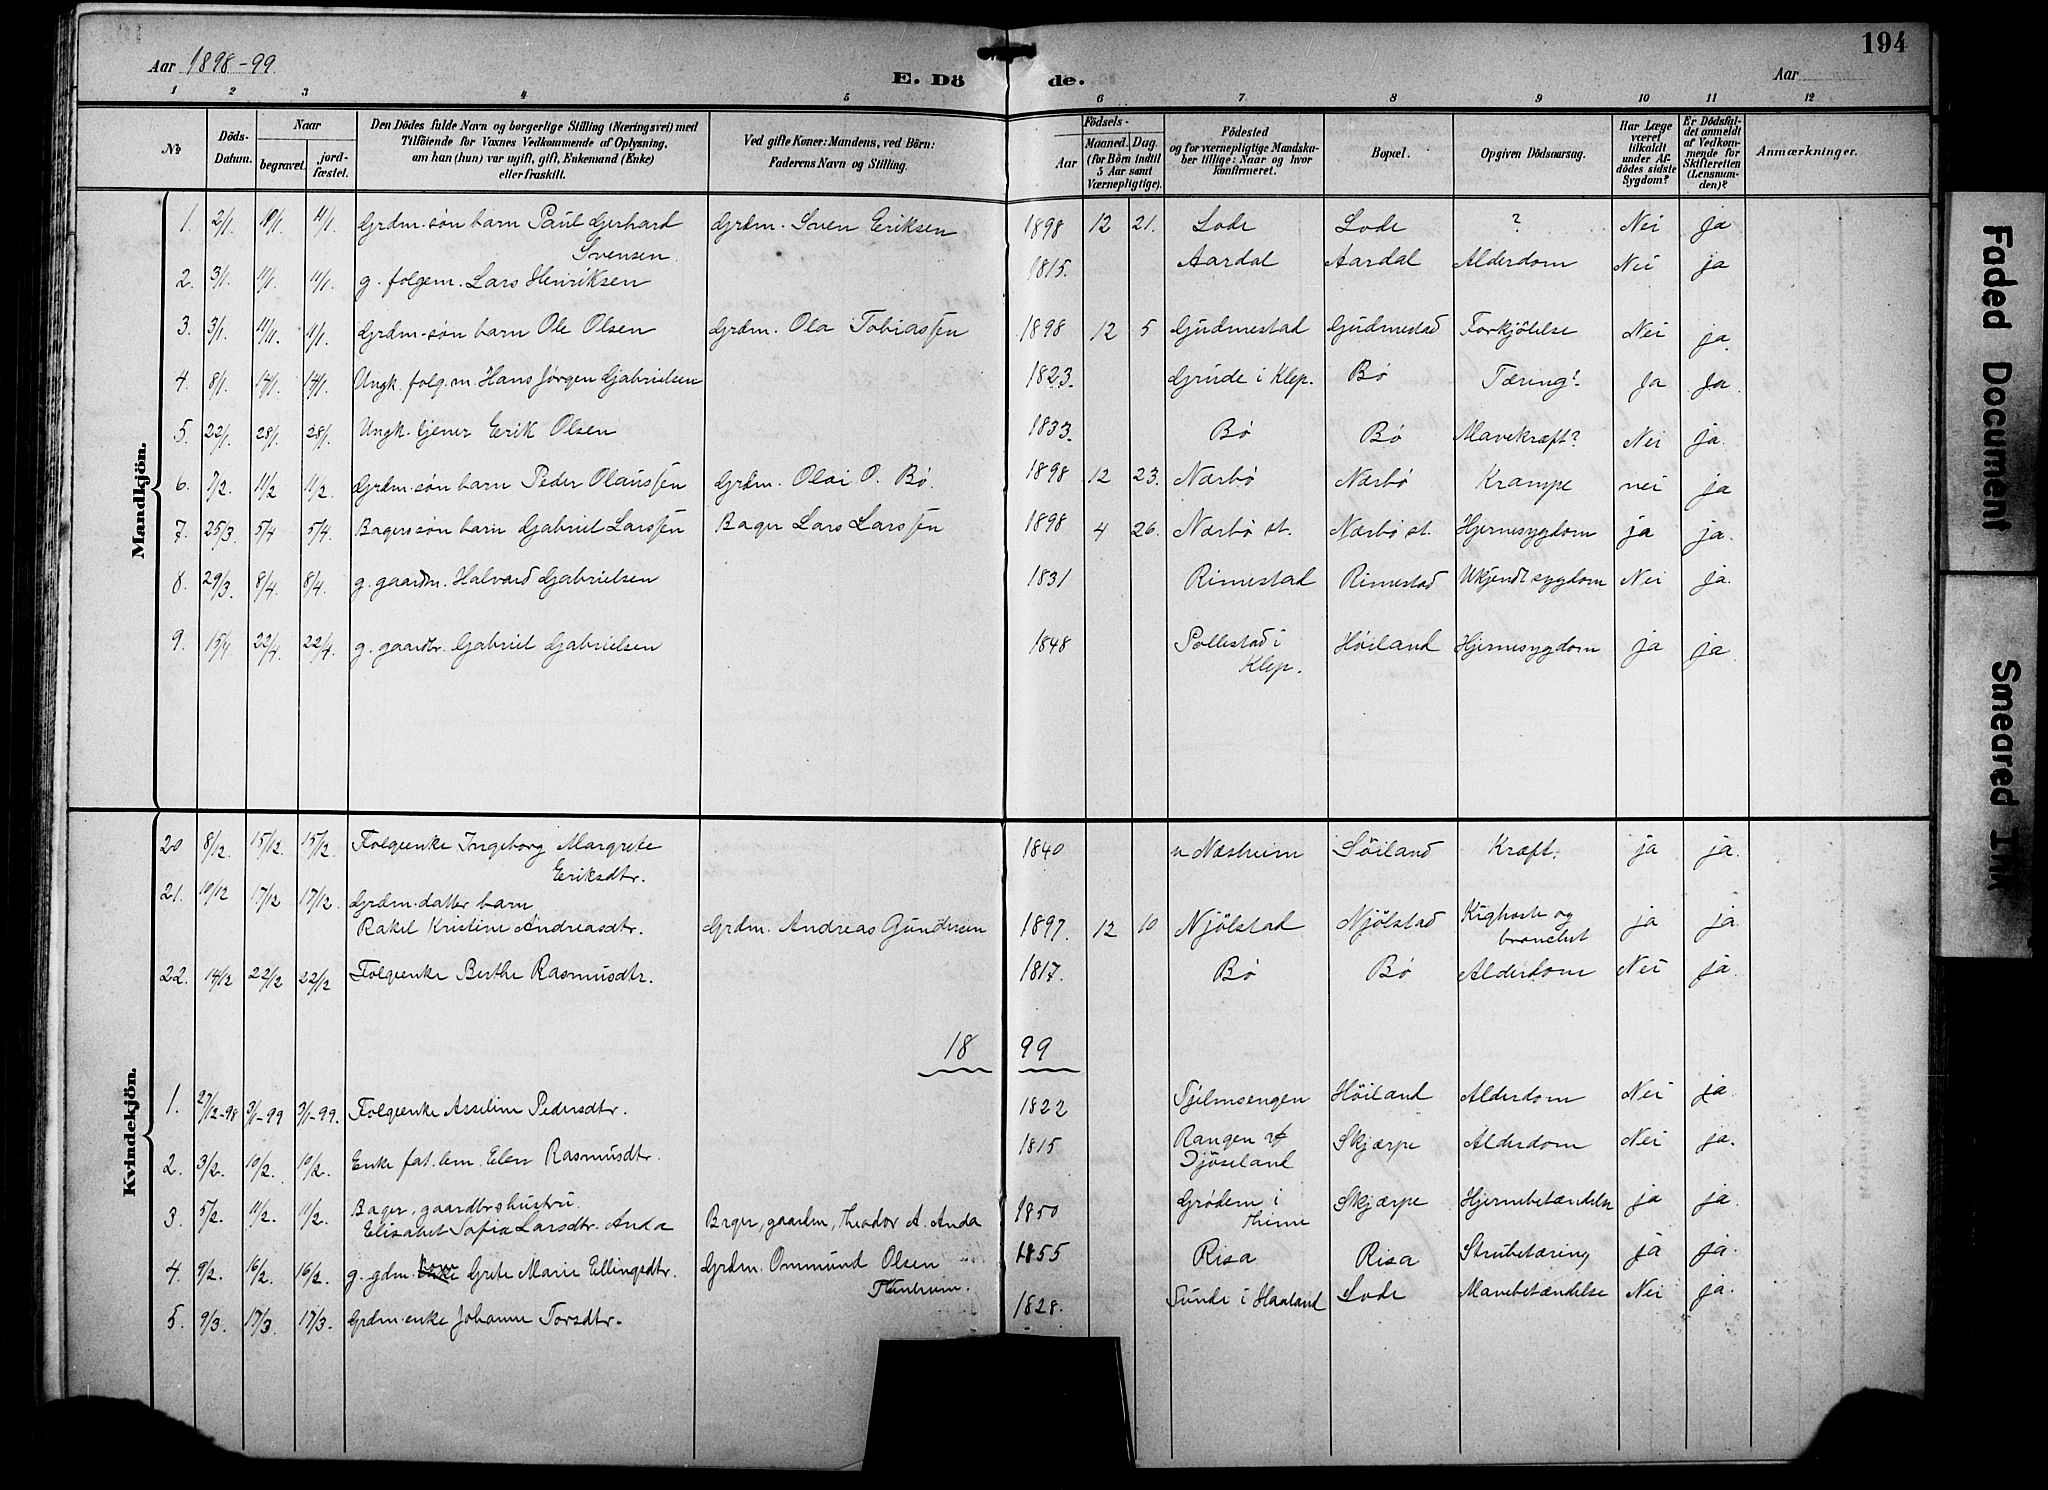 194
Aar 1898-99.
E. Dö de.
Aar
1 2 3 4 5 6 7 8 9 10 11 12
No
Döds-Datum.
Naar
begravet.
jord-fæstet.
Den Dödes fulde Navn og borgerlige Stilling (Næringsvei) med
Tilföiende for Voxnes Vedkommende af Oplysning,
om han (hun) var ugift, gift, Enkemand (Enke)
eller fraskilt.
Ved gifte Koner: Mandens, ved Börn:
Faderens Navn og Stilling.
Födsels-
Aar
Maaned. Dag.
(for Börn indtil
5 Aar samt
Værnepligtige).
Födested
og for værnepligtige Mandska-
ber tillige: Naar og hvor
konfirmeret.
Bopæl.
Opgiven Dödsaarsag.
Har Læge
været
tilkaldt
under Af-
dödes sidste
Sygdom?
Er Dödsfal-
det anmeldt
af Vedkom-
mende for
Skifteretten
(Lensman-
den)?
Anmærkninger.
Mandkjön.
1. 2/1. 11/1. 11/1. Grdm. søn barn Paul Gerhard Svensen Grdm. Sven Eriksen 1898 12 21. Lode Lode ? Nei ja
2. 3/1. 11/1. 11/1. g. folgem. Lars Henriksen 1815. Aardal Aardal Alderdom Nei ja
3. 3/1. 11/1. 11/1. Grdm. søn barn Ole Olsen Grdm. Ola Tobiassen 1898 12 5 Gudmestad Gudmestad Forkjölelse Nei ja.
4. 8/1. 14/1. 14/1. Ungk. folg. m. Hans Jørgen Gabrielsen 1823. Grude i Klep. Bø Tæring! Ja Ja.
5. 22/1. 28/1. 28/1. Ungk. tjener Erik Olsen 1833. Bø Bø Mavekræft? Nei ja.
6. 7/2. 11/2 11/2. Grdm. søn barn Peder Olaussen Grdm. Olai O. Bø. 1898 12 23. Nærbø Nærbø Krampe nei ja
7. 25/3. 5/4 5/4. Bagers søn barn Gabriel Larssen Bager Lars Larssen 1898 4 26. Nærbø st. Nærbø st. Hjernesygdom ja ja.
8. 29/3. 8/4 8/4. g. gaardm. Halvard Gabrielsen 1831 Rimestad Rimestad Ukjendt sygdom Nei ja.
9. 15/4 22/4. 22/4. g. gaardbr. Gabriel Gabrielsen 1848 Pollestad i Klep. Høiland Hjernesygdom ja ja.
Kvindekjön.
20 8/12. 15/12. 15/12. Folgeenke Ingeborg Margrete Eriksdtr. 1840 n Næsheim Søiland Kræft. ja ja.
21. 10/12 17/12 17/12. Grdm. datter barn
Rakel Kristine Andreasdtr. Grdm. Andreas Gundersen 1897. 12 10 Njölstad Njölstad Kighoste og bronchit ja ja.
22. 14/12 22/12 22/12 Folgeenke Berthe Rasmusdtr. 1817. Bø Bø Alderdom Nei ja.
18 99
1. 27/12-98 3/1-99 3/1-99. Folgeenke Asseline Pedersdtr. 1822 Høiland Alderdom Nei ja.
2. 3/2. 10/2. 10/2. Enke fat. lem. Elen Rasmusdtr. 1815 Rangen Skjærpe Alderdom Nei ja.
3. 5/2. 11/2. 11/2. Bager, gaardbrs hustru
Elisabet Sofia Larsdtr. Anda Bager, gaardm, Theodor A. Anda 1850 Grødem i Skjærpe Hjernebetændelse ja ja.
4. 9/2. 16/2. 16/2. g. gdm. Grete Marie Ellingsdtr. Grdm. Ommund Olsen 1855 Risa Risa Strubetæring ja ja.
5. 9/3. 17/3. 17/3. Grdm. enke Johanne Torsdtr. 1828. Sunde i Haaland Lode Mavebetændelse Nei ja.
Faded Document
Smeared Ink